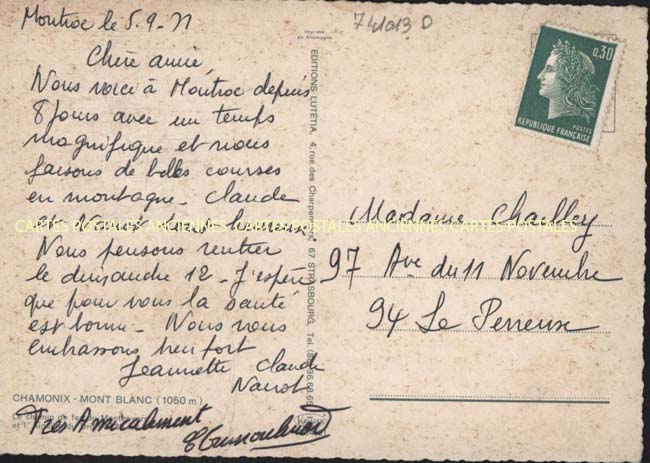 Montroc le 5.9-71
741013 D
Chère amie,
Nous voici à Montroc depuis
8 jours avec un temps
magnifique et nous
faisons de belles courses
en montagne - Claude
et
CARTES POSTALES ANCIENNES CARTES POSTALES ANCIENNES CARTES POSTALES
Nous pensons rentrer
le dimanche 12 - J'espère
que pour vous la santé
est bonne - Nous vous
embrassons bien fort
Jeannette Claude
CHAMONIX - MONT BLANC (1050 m)
Très Amicalement
Imprimé
en Allemagne
EDITIONS LUTÉTIA, 4, rue des Charpentiers, 67 STRASBOURG, Tél.
0,30
POSTES
RÉPUBLIQUE FRANÇAISE
Madame Chailley
97 Ave du 11 Novembre
94 Le Perreux